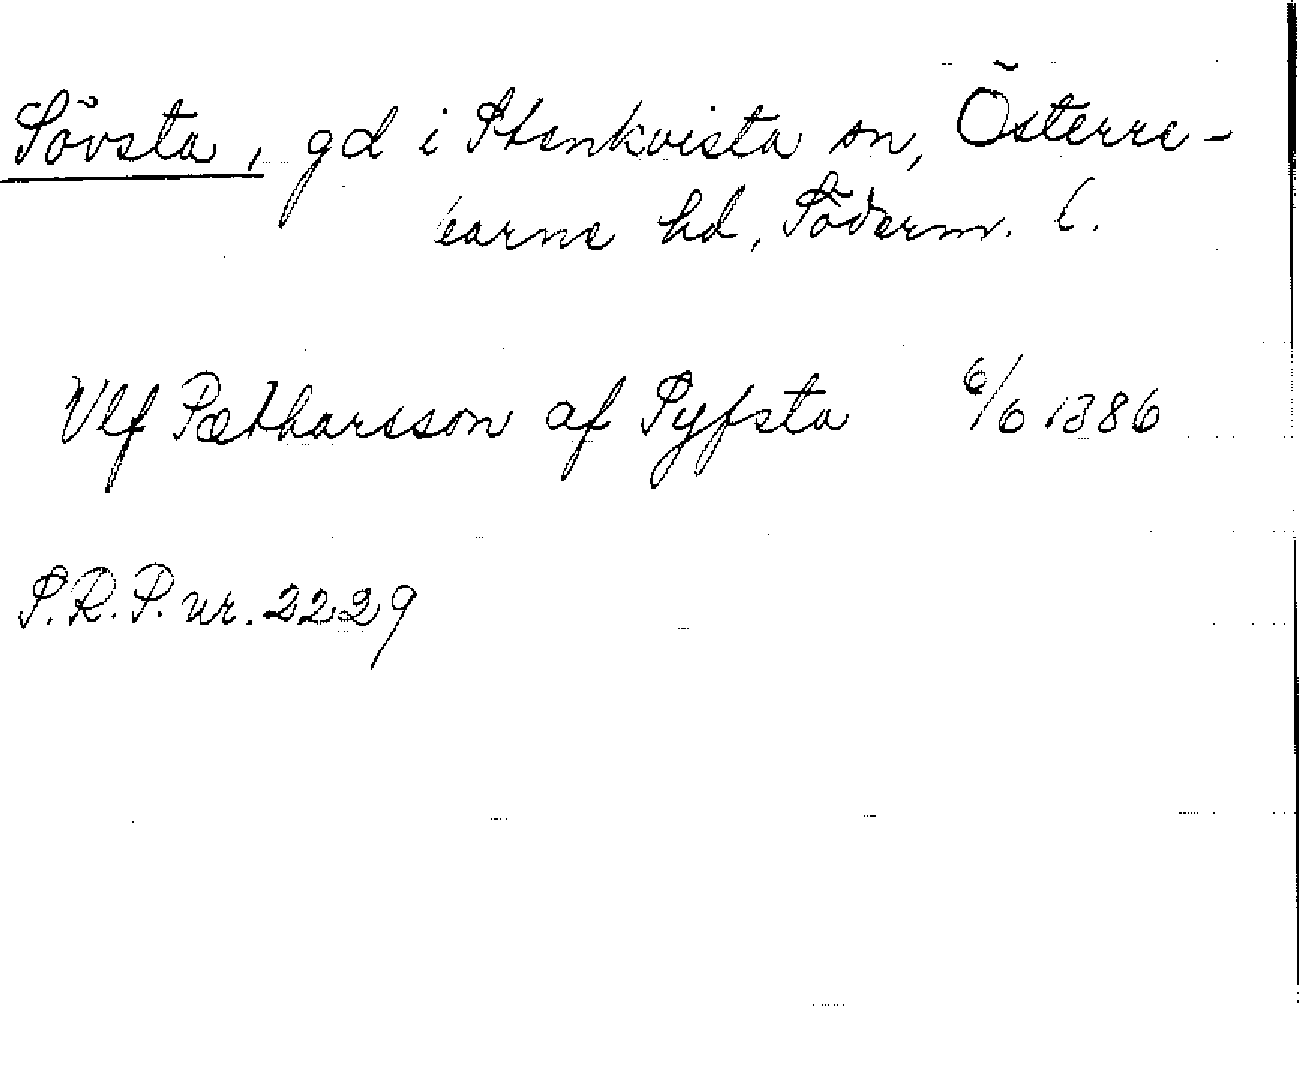 Sövsta, gd i Stenkvista sn, Österre-
karne hd, Söderm. l.
Ulf Pætharsson af Syfsta 6/6 1386
S.R.P. nr. 2229